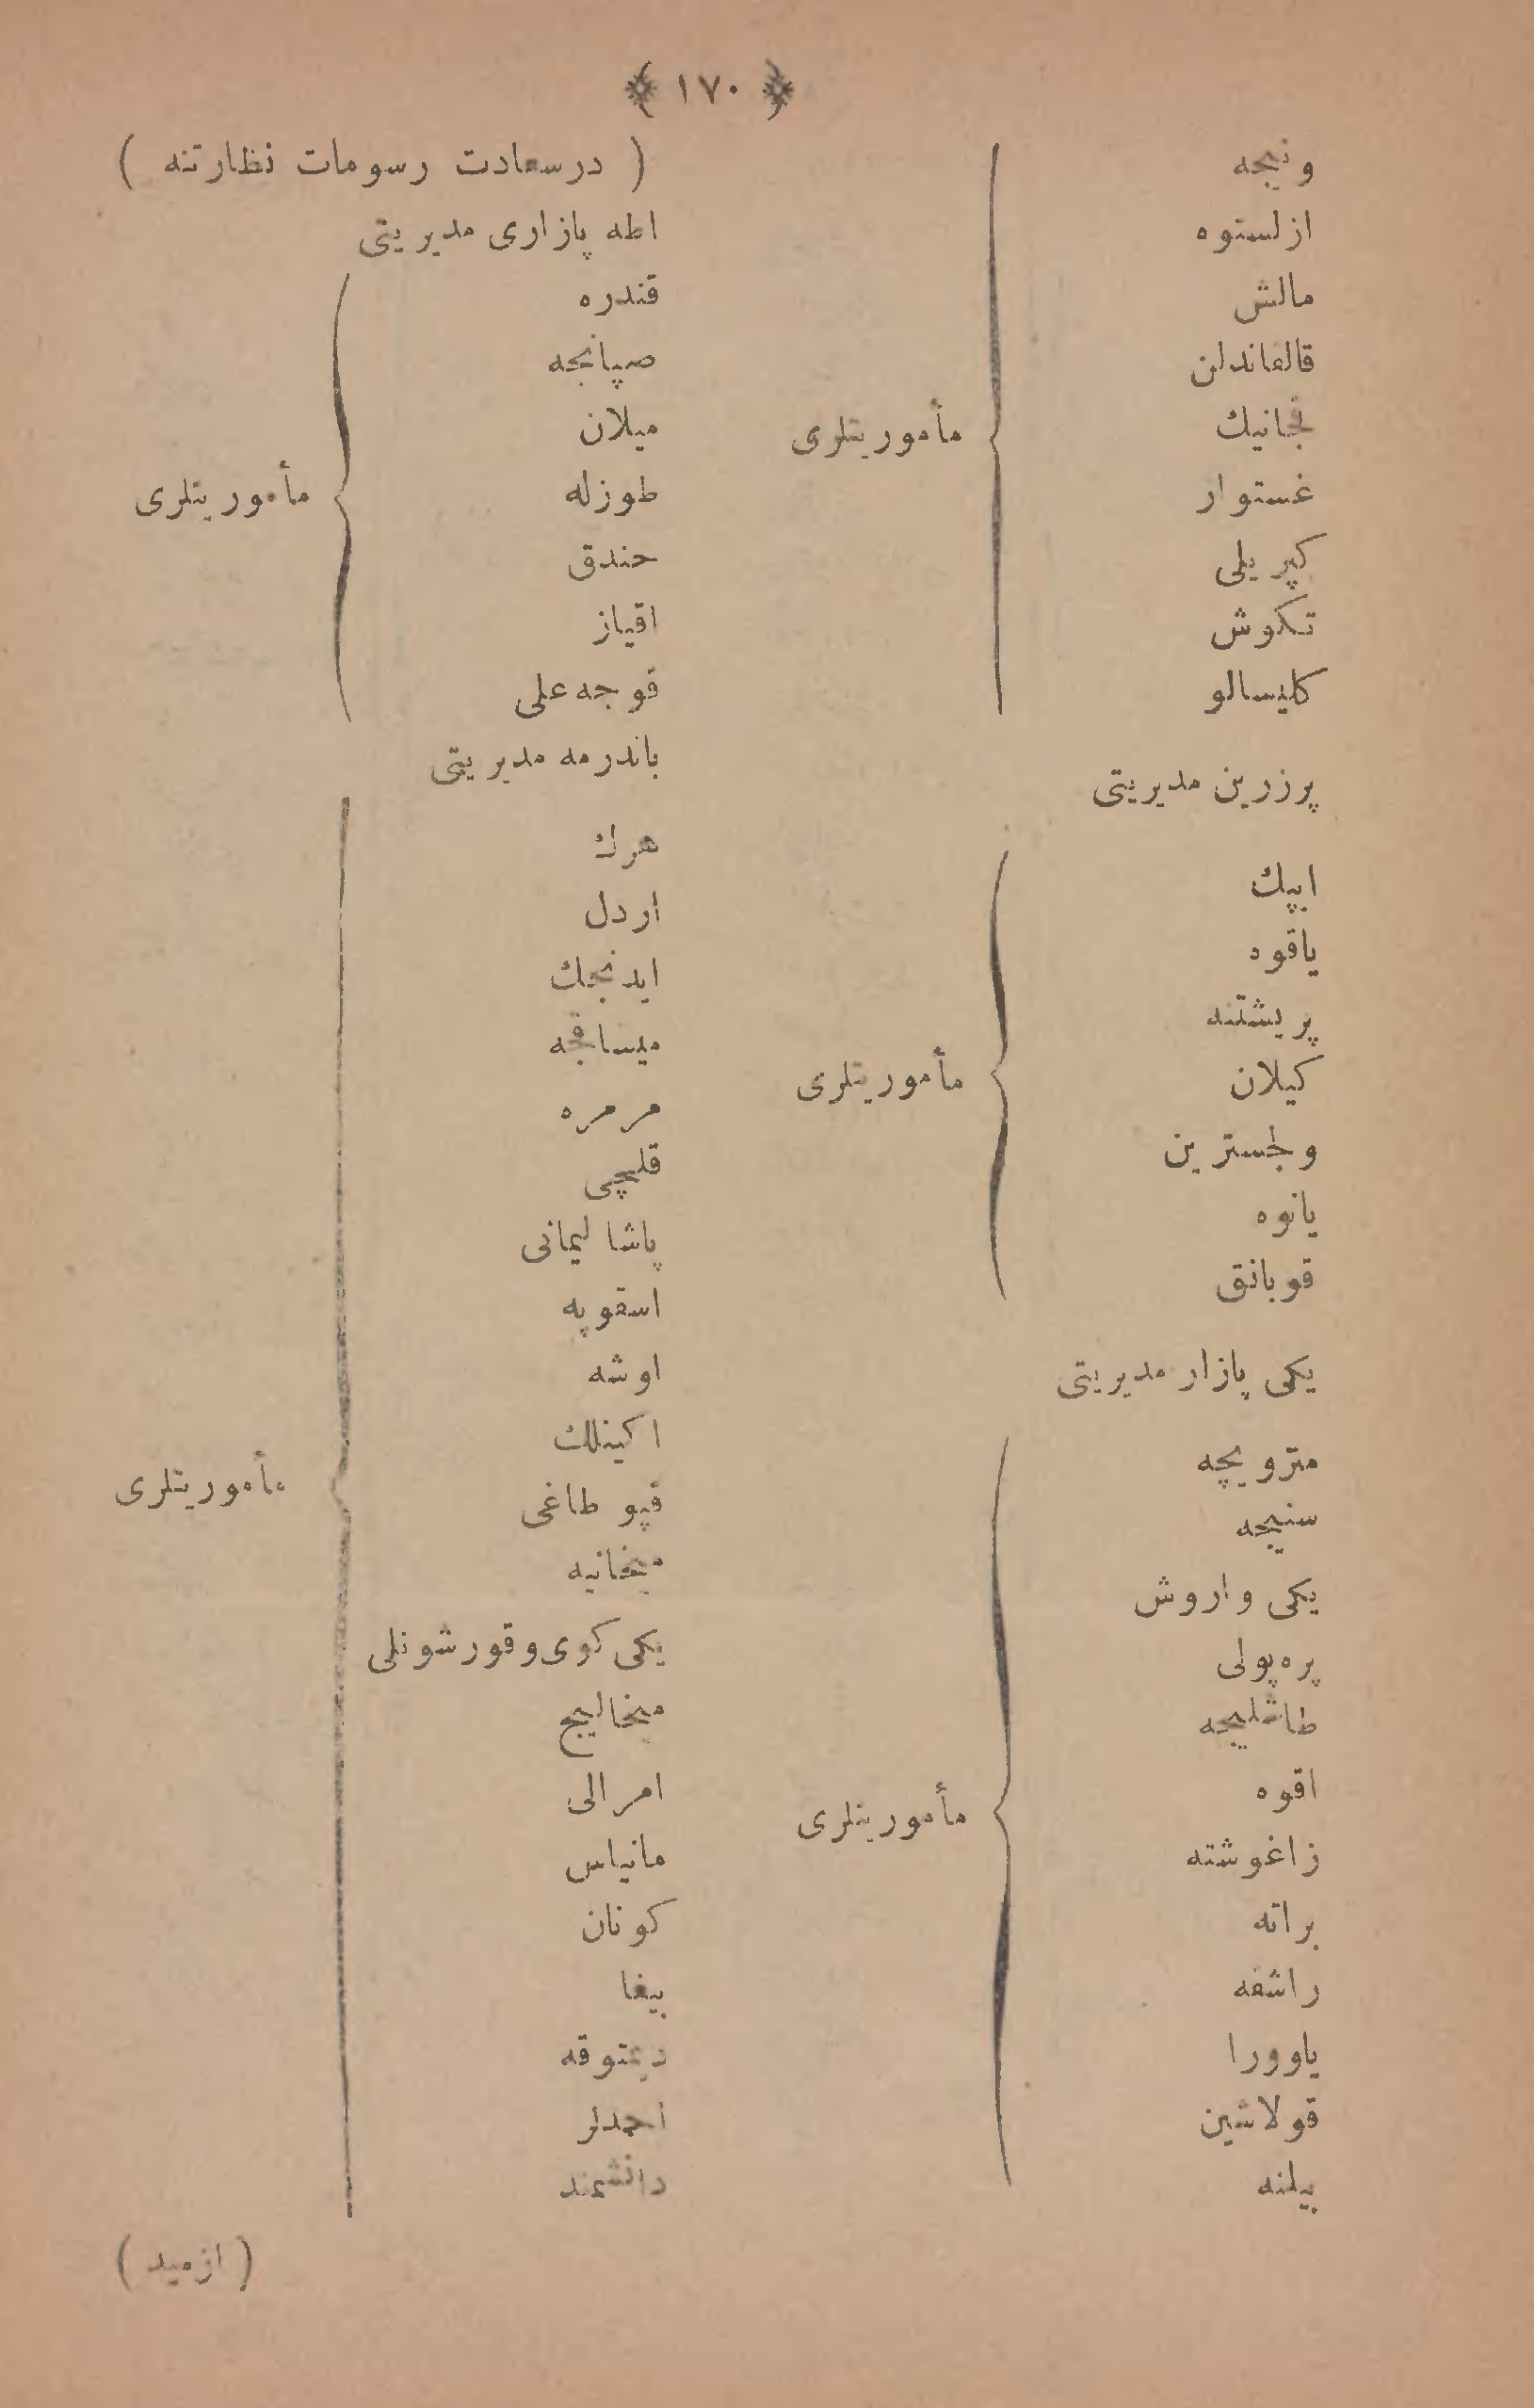 ﴿ ١٧٠ ﴾
ونيجه
ازلستوه
مالش
قالقاندلن
غستوار
كپريلی
تكوش
كليسالو
مأموريتلری
پرزرين مديريتی
ايپك
ياقوه
پريشتنه
كيلان
ولچسترين
يانوه
قوبانق
مأموريتلری
يكی پازار مديريتی
متروﻳﭽﻪ
سنيجه
يكی واروش
پره‌پولی
طاشليجه
اقوه
زاغوشته
براته
راشقه
ياوورا
قولاشين
بيلنه
مأموريتلری
( درسعادت رسومات نظارتنه )
اطه پازاری مديريتی
قندره
صپانجه
ميلان
طوزله
حندق
اقياز
قوجه علی
مأموريتلری
باندرمه مديريتی
هرك
اردل
ايدنجك
ميساقجه
مرمره
قليچی
پاشا ليمانی
اسقوپه
اوشه
اكينلك
قپو طاغی
ميخانيه
يكی كوی وقورشونلی
ميخاليج
امرالی
مانياس
كونان
بيغا
ديمتوقه
احمدلر
دانشمند
مأموريتلری
( ازميد )